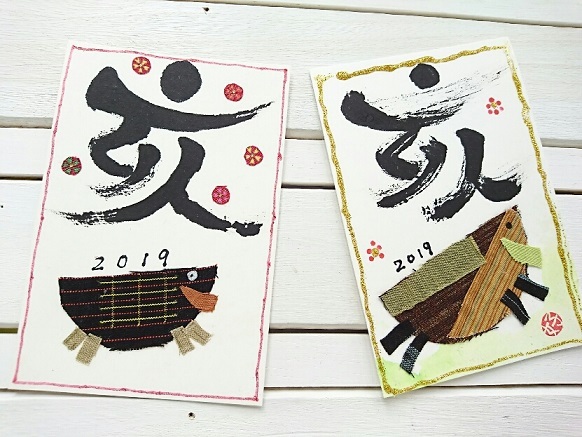 亥
2019
亥
2019